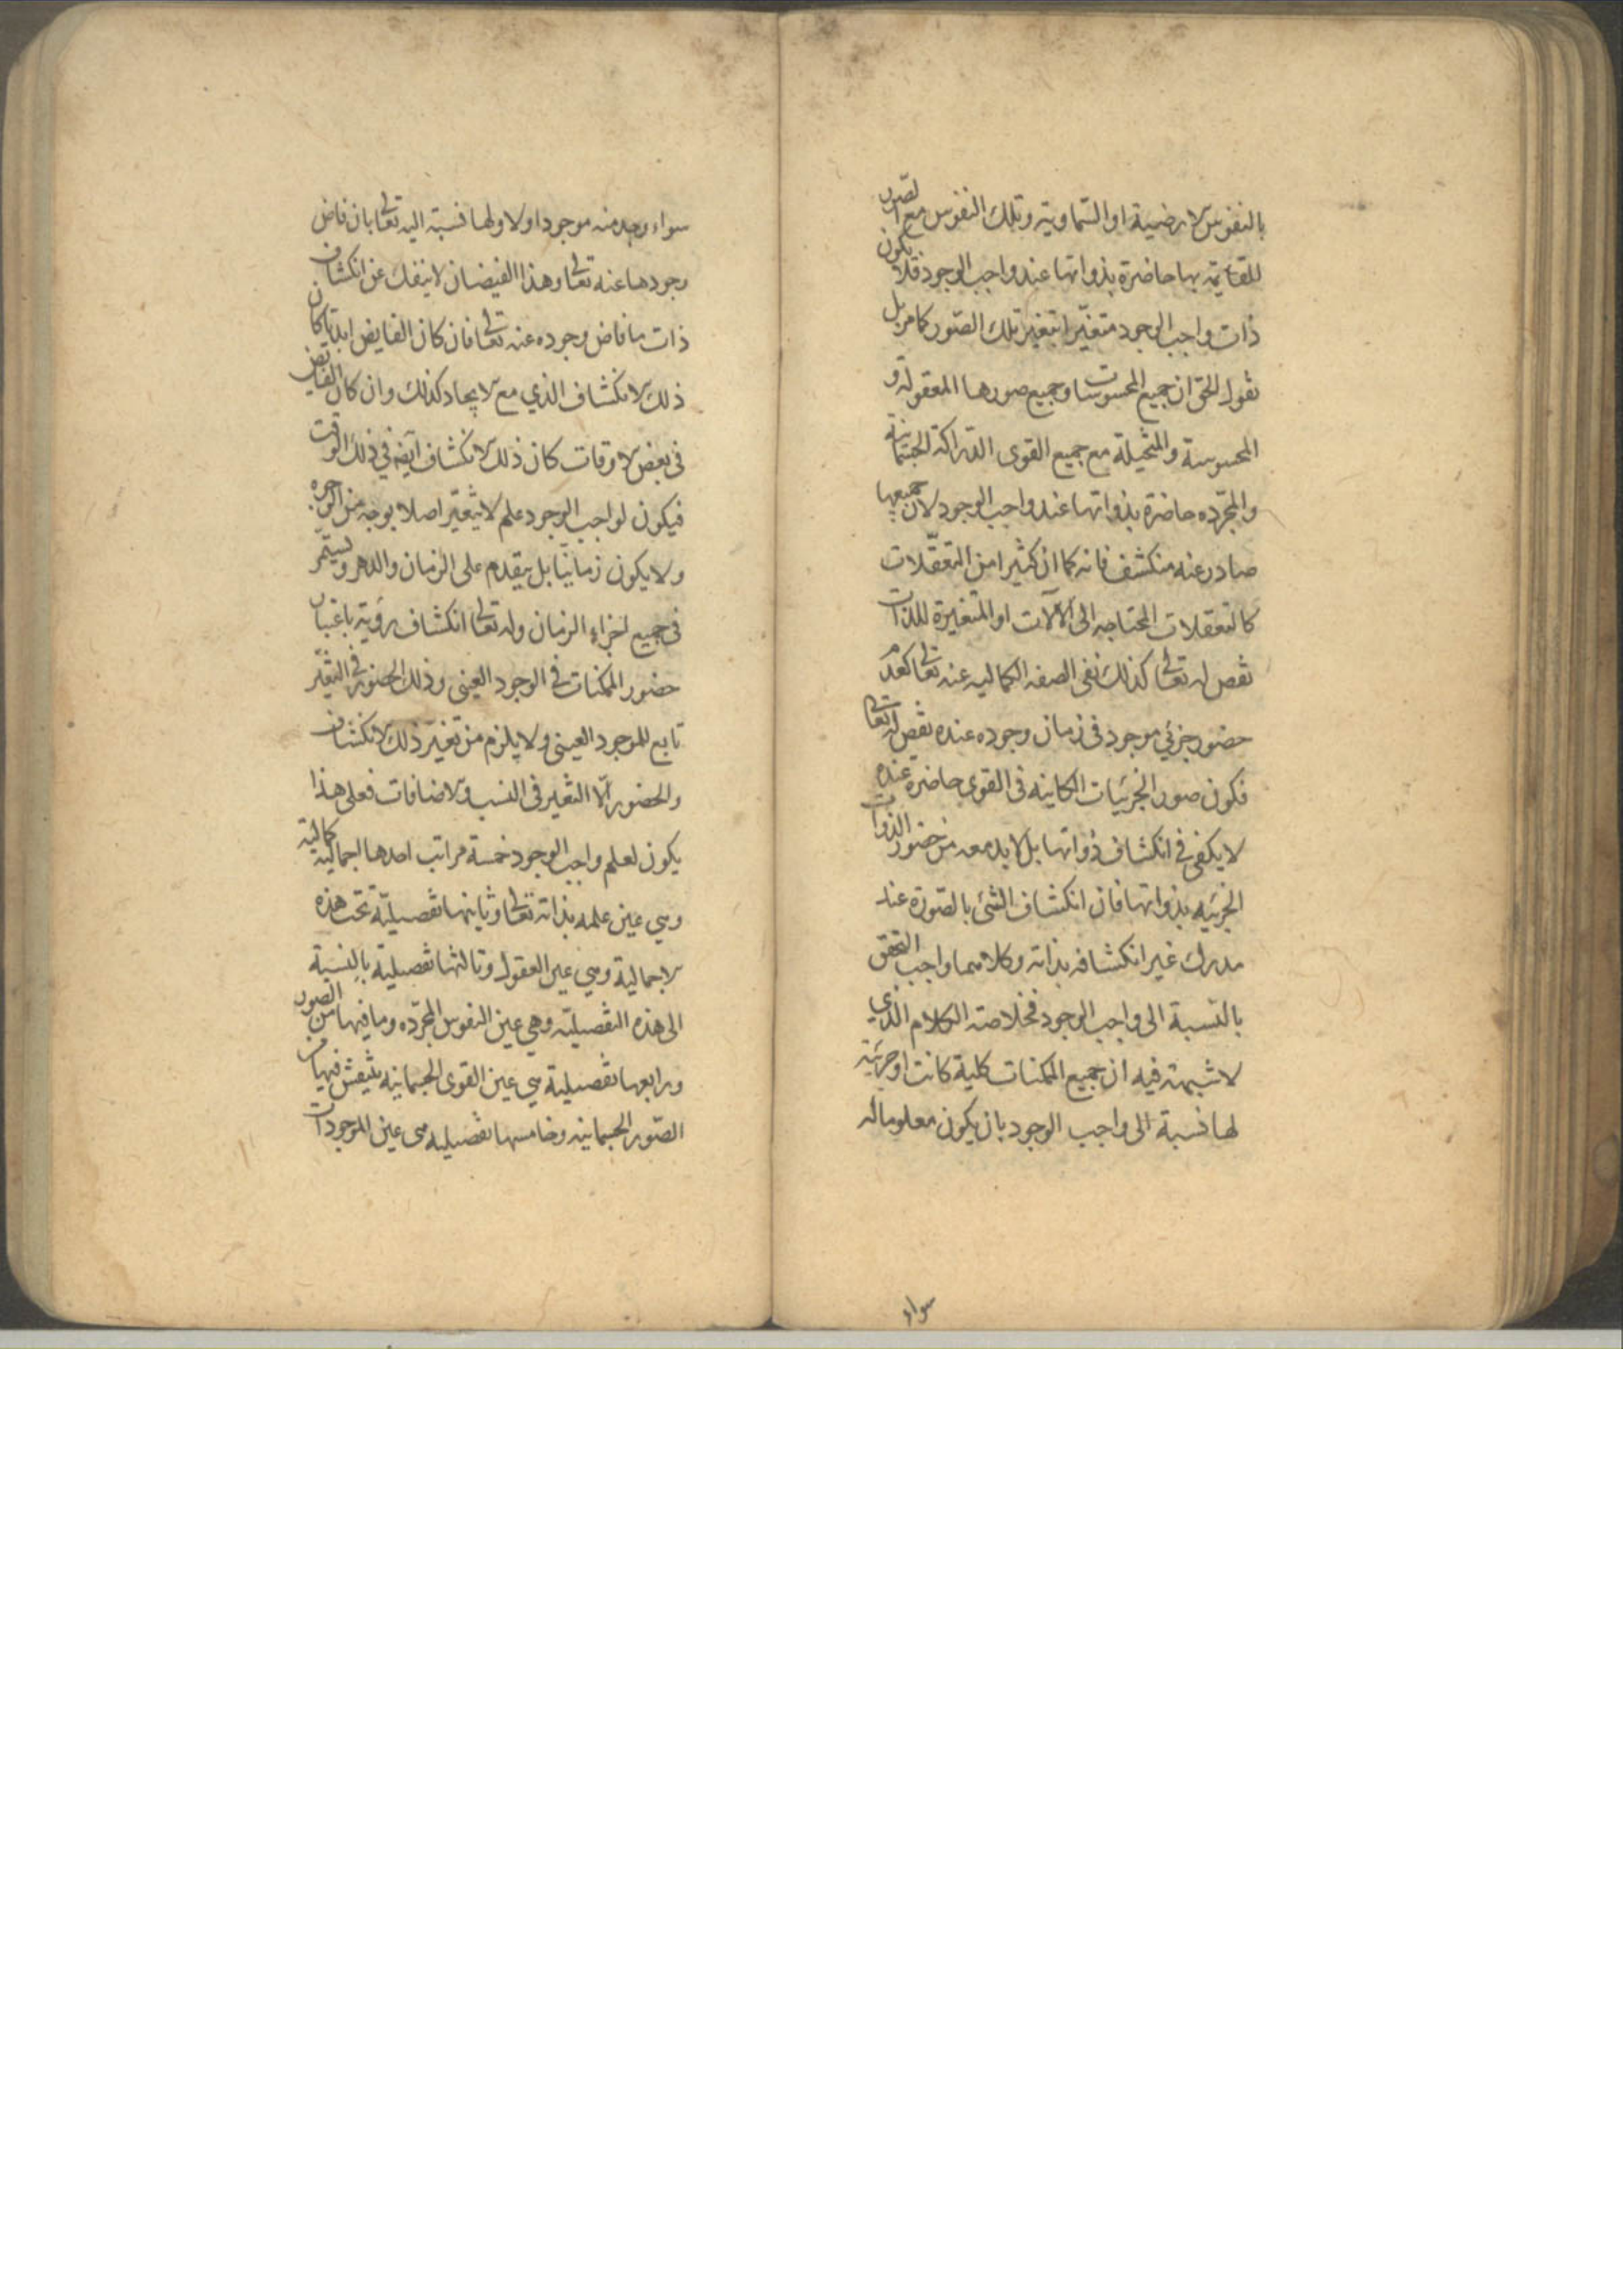 بالنفوس الارضية او السماوية وتلك النفوس مع الصور
القايمة بها حاضرة بذواتها عند واجب الوجود فلا يكون
ذات واجب الوجود متغيرا بتغير تلك الصور كما مر بل
نقول الحق ان جميع المحسوسات وجميع صورها المعقولة و
المحسوسة والمتخيلة مع جميع القوى الدراكة الجسمانية
والمجرده حاضرة بذواتها عند واجب الوجود لان جميعها
صادر عنه منكشف فانه كما ان كثيرا من التعقلات
كالتعقلات المحتاجه الى الآلات او المتغيرة للذات
نقص له تعالى كذلك نفى الصفه الكماليه عنه تعالى كعدم
حضور جزئي موجود في زمان وجوده عنده نقص له تعالى
فكون صور الجزئيات الكاينه في القوى حاضرة عنده
لا يكفي في انكشاف ذواتها بل لا بد معه من حضور الذوات
الجزئيه بذواتها فان انكشاف الشئ بالصورة عند
مدرك غير انكشافه بذاته وكلاهما واجب التحقق
بالنسبة الى واجب الوجود فخلاصة الكلام الذي
لا شبهة فيه ان جميع الممكنات كلية كانت او جزئية
لها نسبة الى واجب الوجود بان يكون معلوما له
سواء
سواء وجد منه موجودا ولا ولها نسبة اليه تعالى بان فاض
وجودها عنه تعالى وهذا الفيضان لا ينفك عن انكشاف
ذات ما فاض وجوده عنه تعالى فان كان الفايض ابديا كان
ذلك الانكشاف الذي مع الايجاد كذلك وان كان الفايض
في بعض الاوقات كان ذلك الانكشاف ايضا في ذلك الوقت
فيكون لواجب الوجود علم لا يتغير اصلا بوجه من الوجوه
ولا يكون زمانيا بل يتقدم على الزمان والدهر ويستمر
في جميع اجزاء الزمان وله تعالى انكشاف رؤية باعتبار
حضور الممكنات في الوجود العيني وذلك الحضور في التغير
تابع للموجود العيني ولا يلزم من تغير ذلك الانكشاف
والحضور الا التغير في النسب والاضافات فعلى هذا
يكون لعلم واجب الوجود خمسة مراتب احدها اجمالية كمالية
وهي عين علمه بذاته تعالى وثانيها تفصيلية تحت هذه
الاجمالية وهي عين العقول وثالثها تفصيلية بالنسبة
الى هذه التفصيلية وهي عين النفوس المجرده وما فيها من الصور
ورابعها تفصيلية هي عين القوى الجسمانية ينتقش فيها من
الصور الجسمانية وخامسها تفصيليه هى عين الموجودات